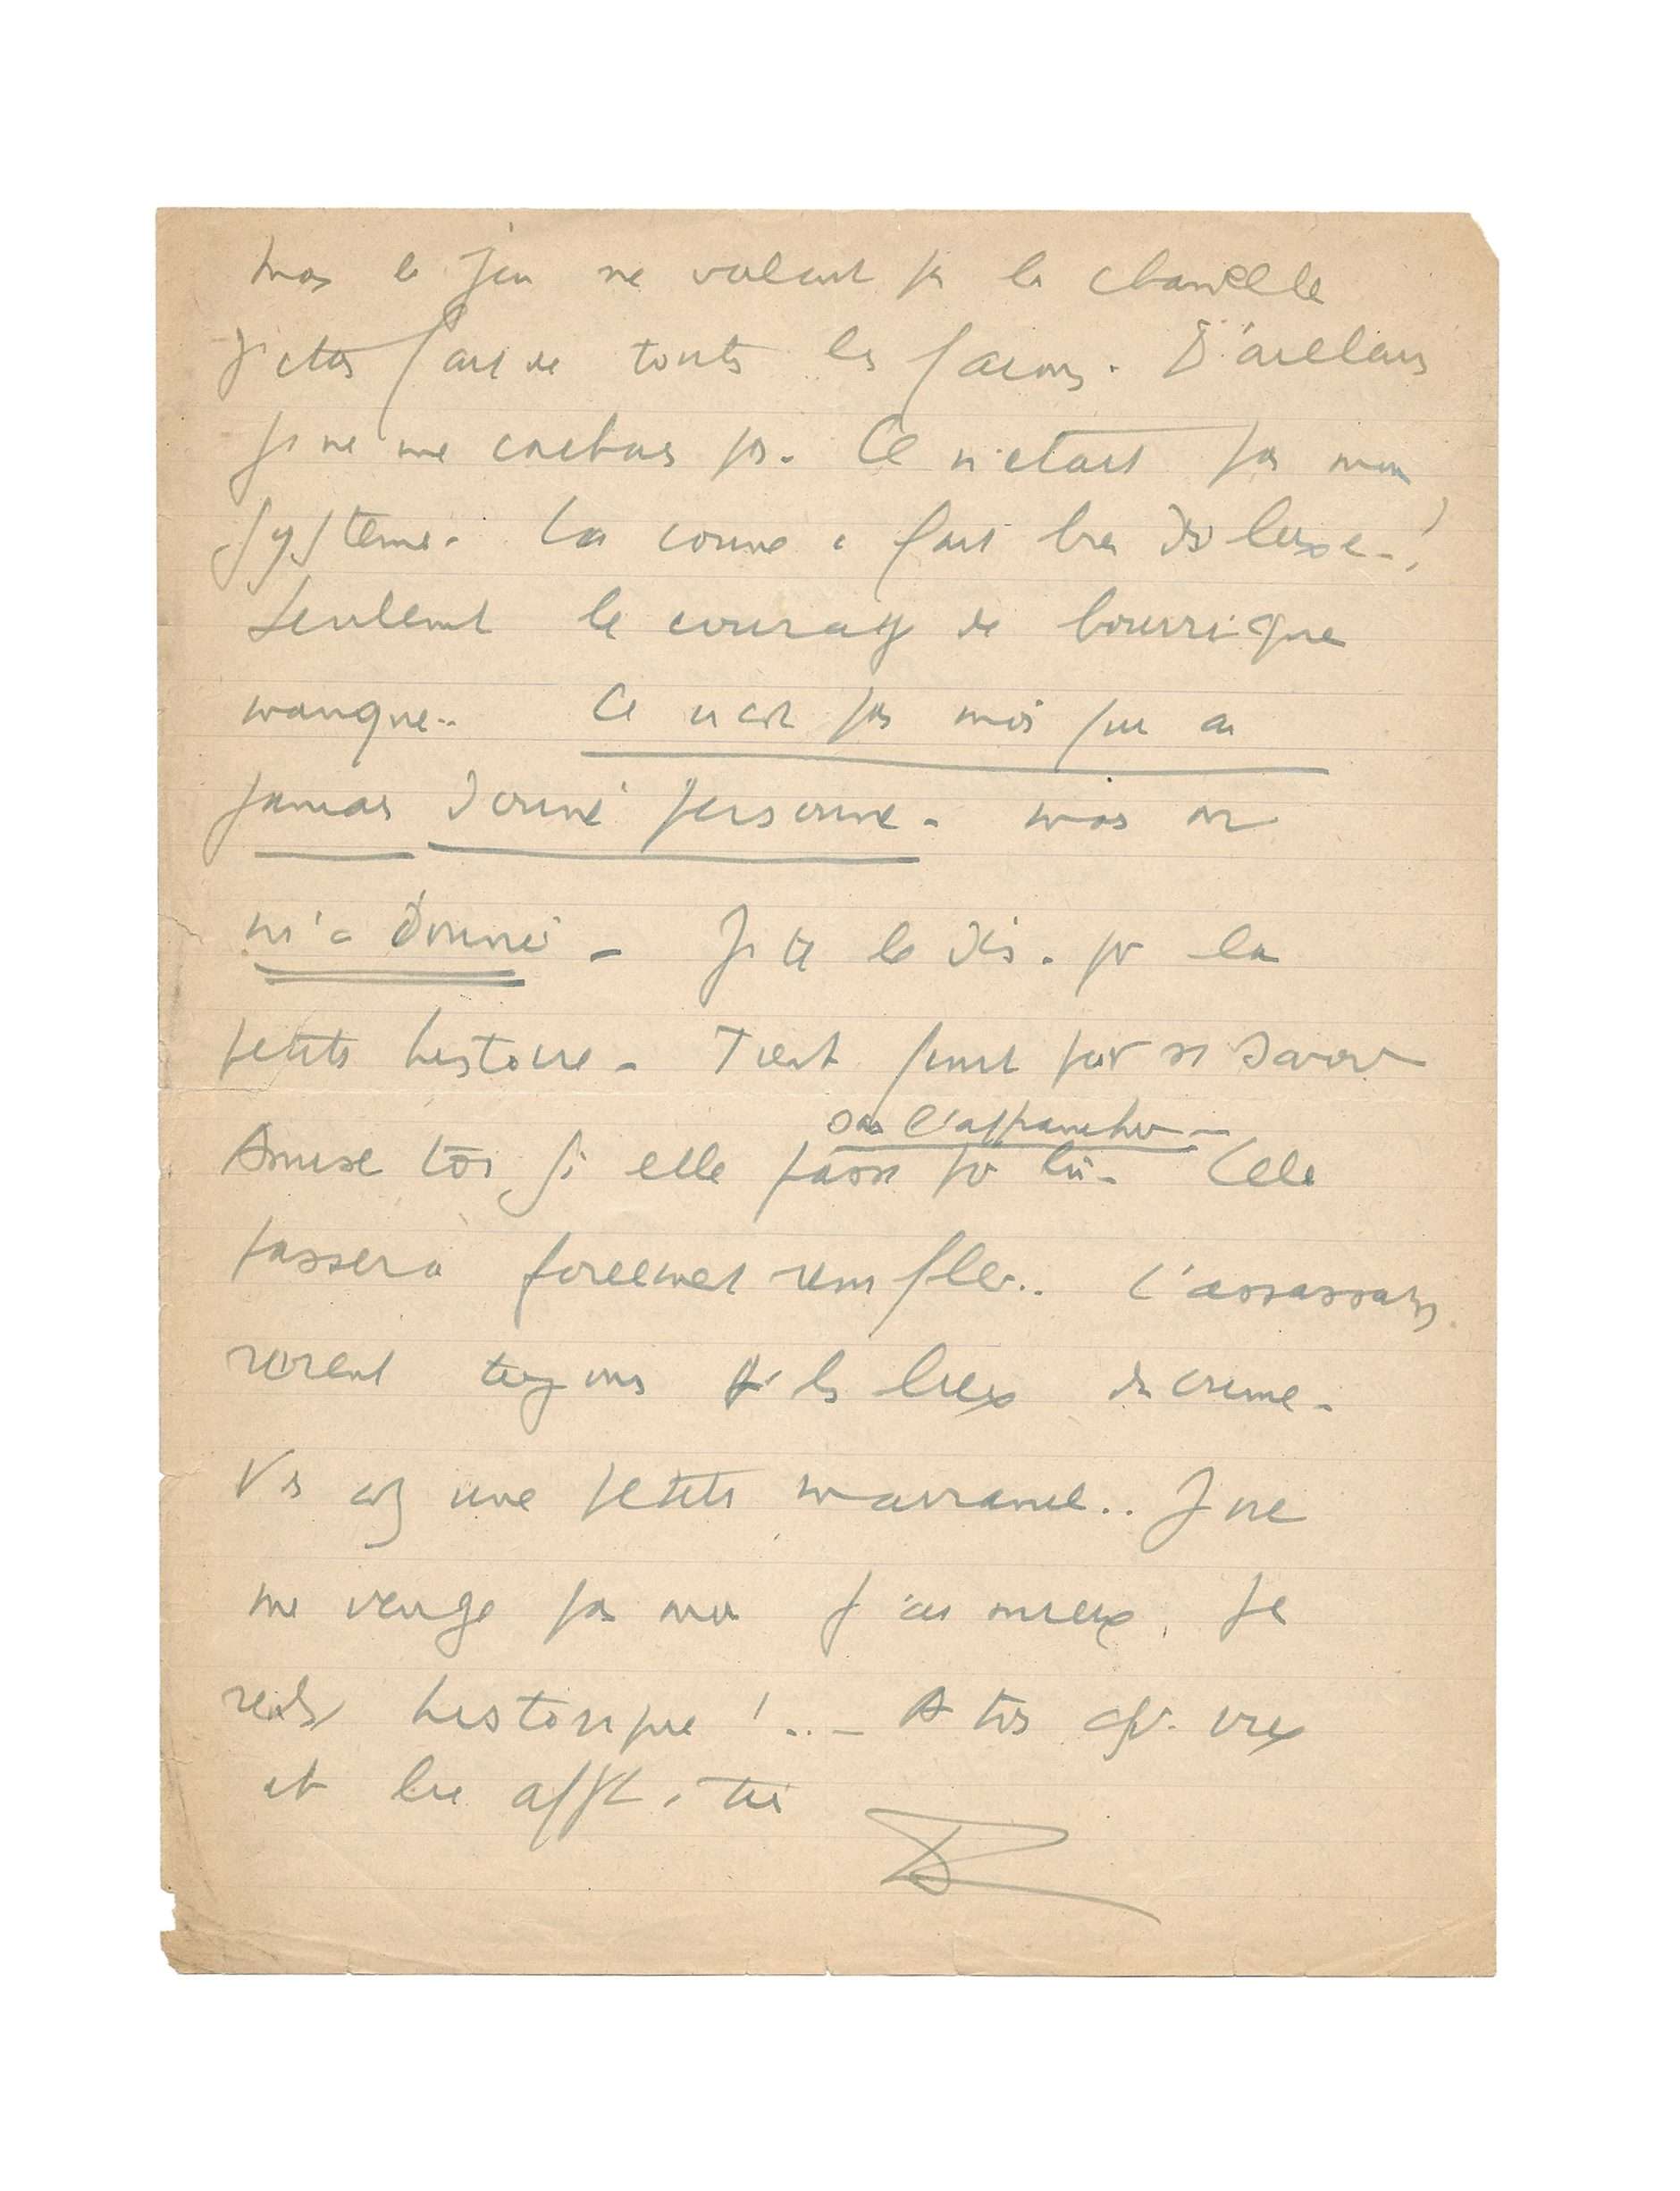 mais le jeu ne valait pas la chandelle
J'étais fait de toutes les façons. D'ailleurs
je ne me cachais pas. Ce n'était pas mon
système. La conne a fait bien du luxe !
Seulement le courage de bourrique
manque.. Ce n'est pas moi qui ai
jamais donné personne. mais on
m'a donné - Je te le dis. pr la
petite histoire - Tient pour
sans l'affranchir -
Amuse toi si elle passe par là. Cela
passera forcément.. L'assassin
revient toujours les lieux du crime.
Vs avez une petite.. Je ne
me venge pas moi j'ai mieux, je
historique !.. - A toi vieux
et bien affect. à toi